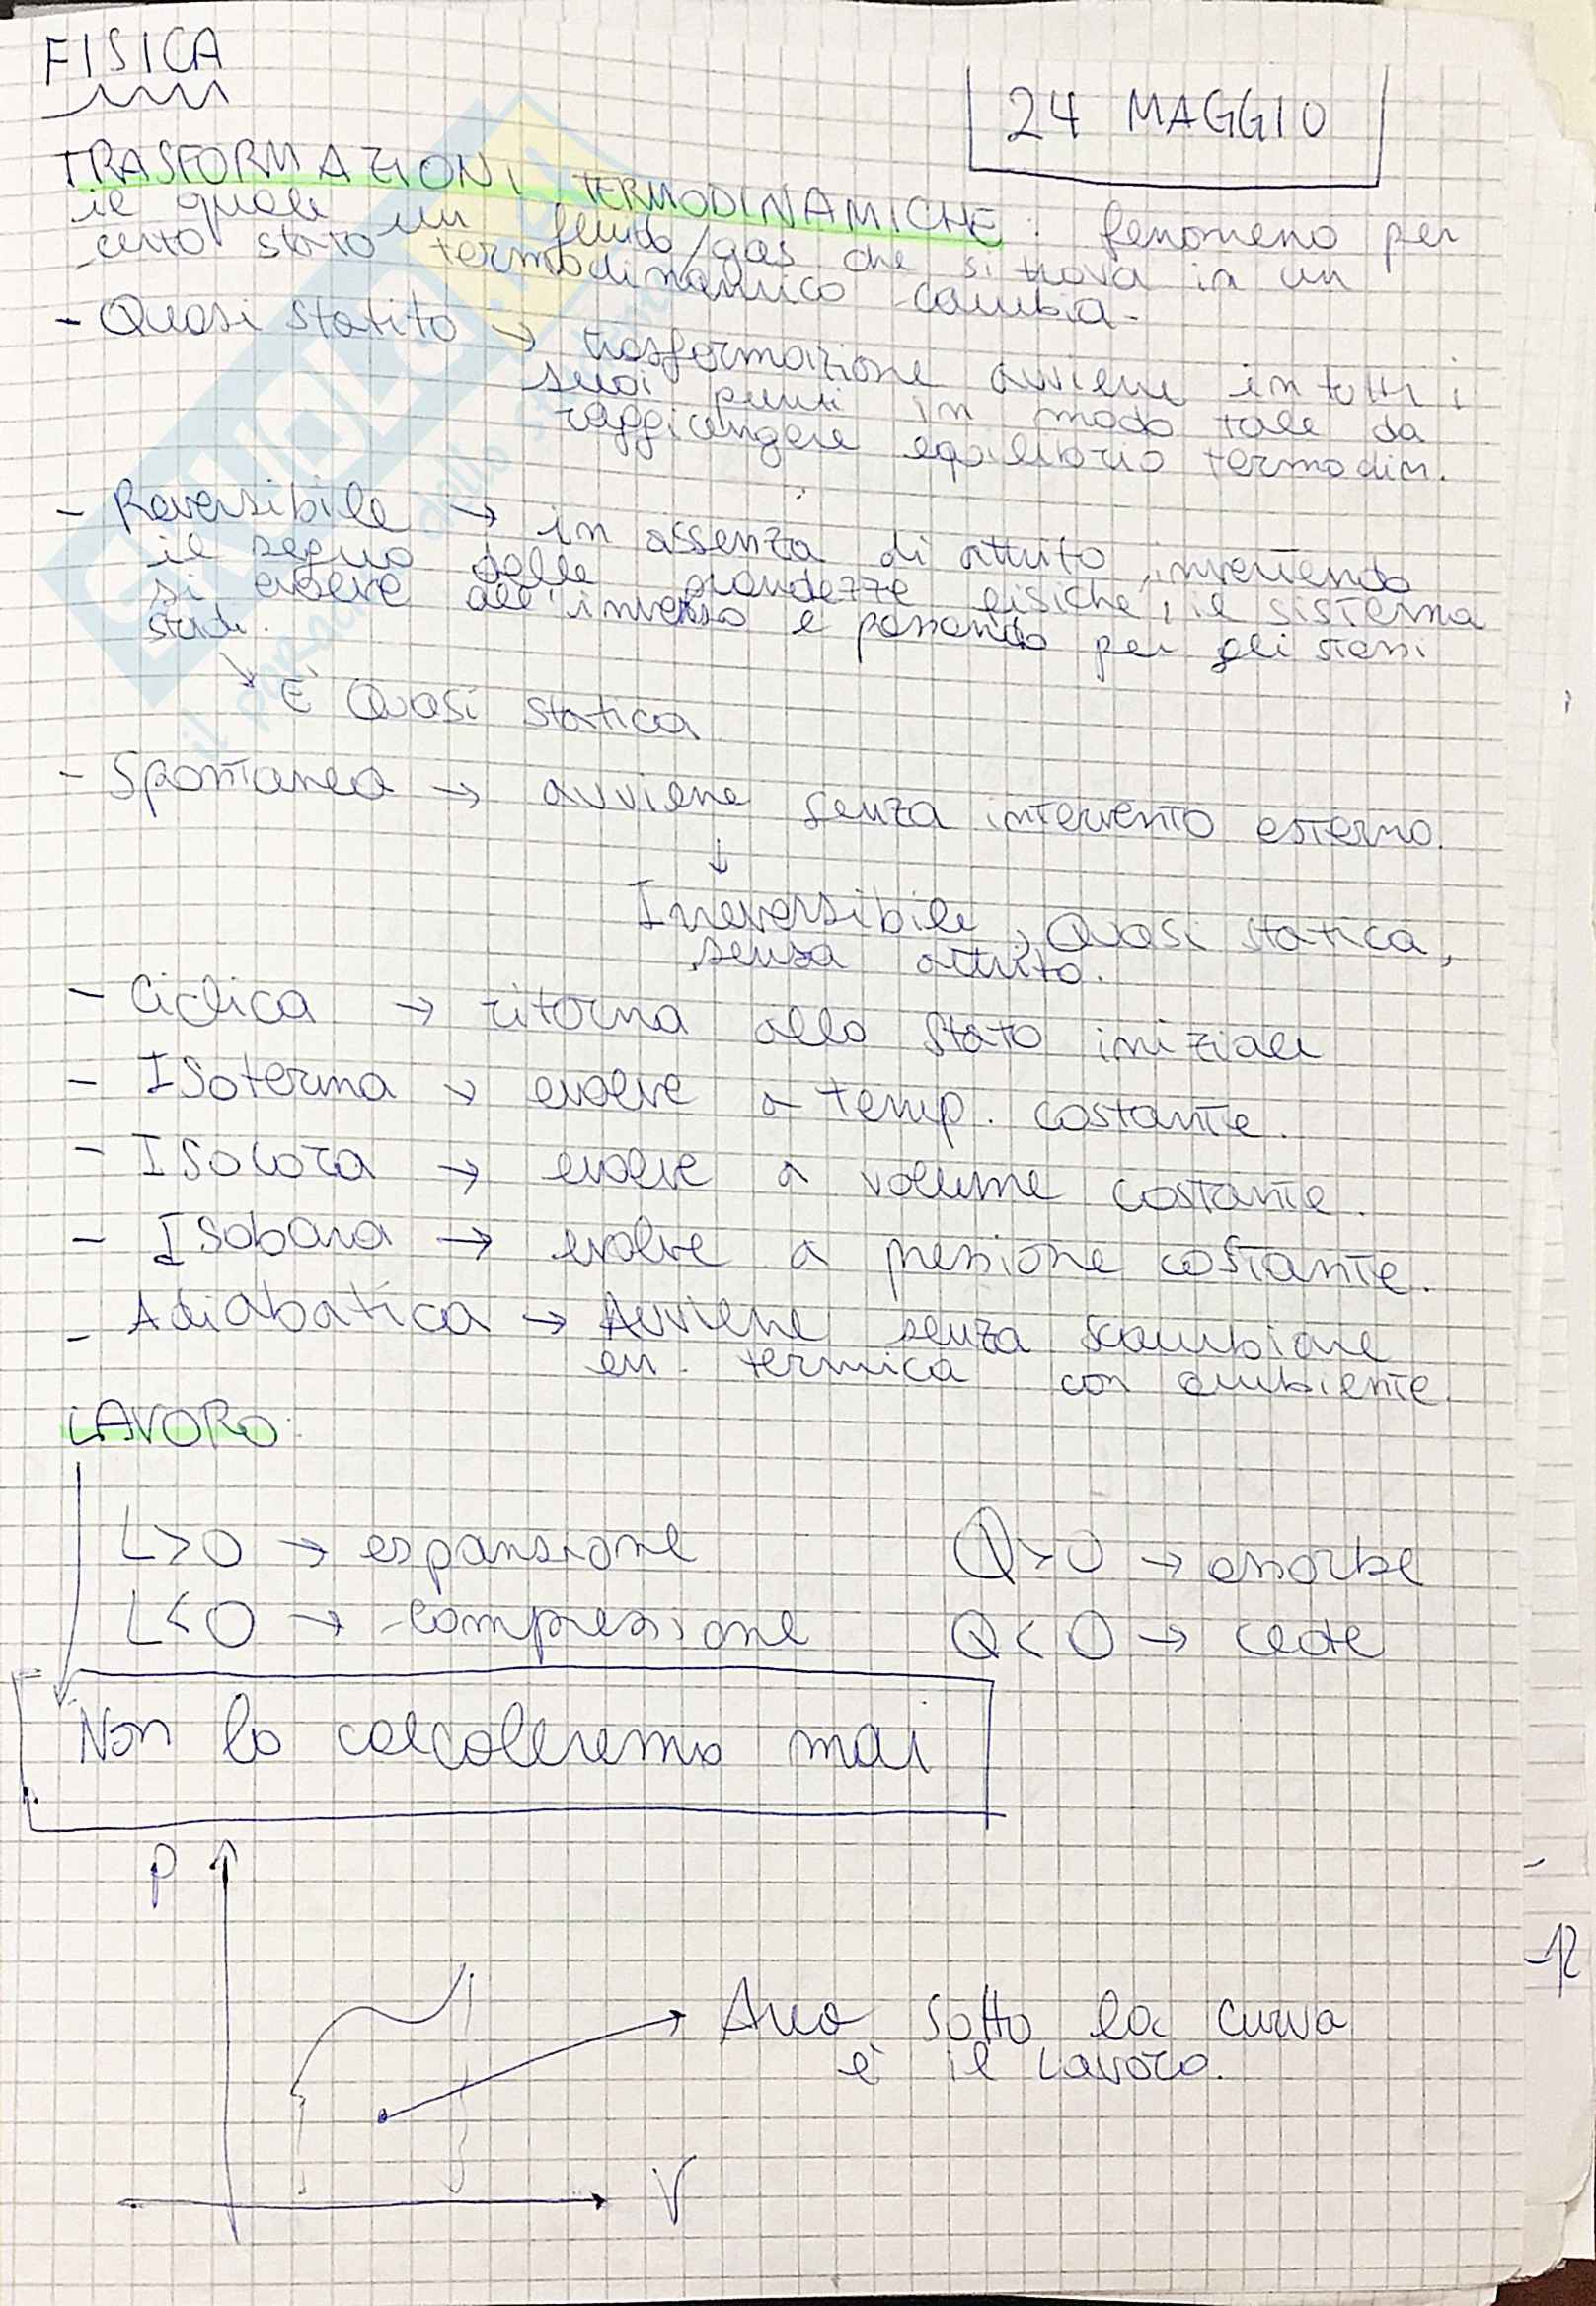 FISICA
24 MAGGIO
TRASFORMAZIONI TERMODINAMICHE: fenomeno per
il quale un fluido/gas che si trova in un
certo stato termodinamico cambia.
- Quasi statito → trasformazione avviene in tutti i
suoi punti in modo tale da
raggiungere equilibrio termodin.
- Reversibile → in assenza di attrito, invertendo
il segno delle grandezze fisiche, il sistema
si evolve all'inverso e passando per gli stessi
stadi.
↘ E' Quasi statica
- Spontanea → avviene senza intervento esterno.
↓
Irreversibile, Quasi statica,
senza attrito.
- Ciclica → ritorna allo stato iniziale
- ISoterma → evolve a temp. costante.
- ISocora → evolve a volume costante.
- Isobara → evolve a pressione costante.
- Adiabatica → Avviene senza scambiare
en. termica con ambiente.
LAVORO:
L>0 → espansione Q>0 → assorbe
L<0 → compressione Q<0 → cede
Non lo calcoleremo mai
P
Area sotto la curva
è il lavoro.
V